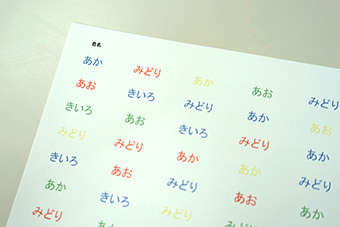 色名
あか みどり あか あお みどり
あお きいろ みどり あか あお
きいろ あお きいろ みどり あか
みどり みどり あか あか みどり
きいろ あお みどり あお あか
あか きいろ みどり みどり
みどり あお